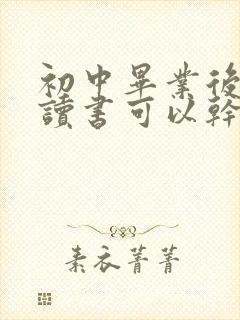 初中畢業後
讀書可以幹
素衣菁菁